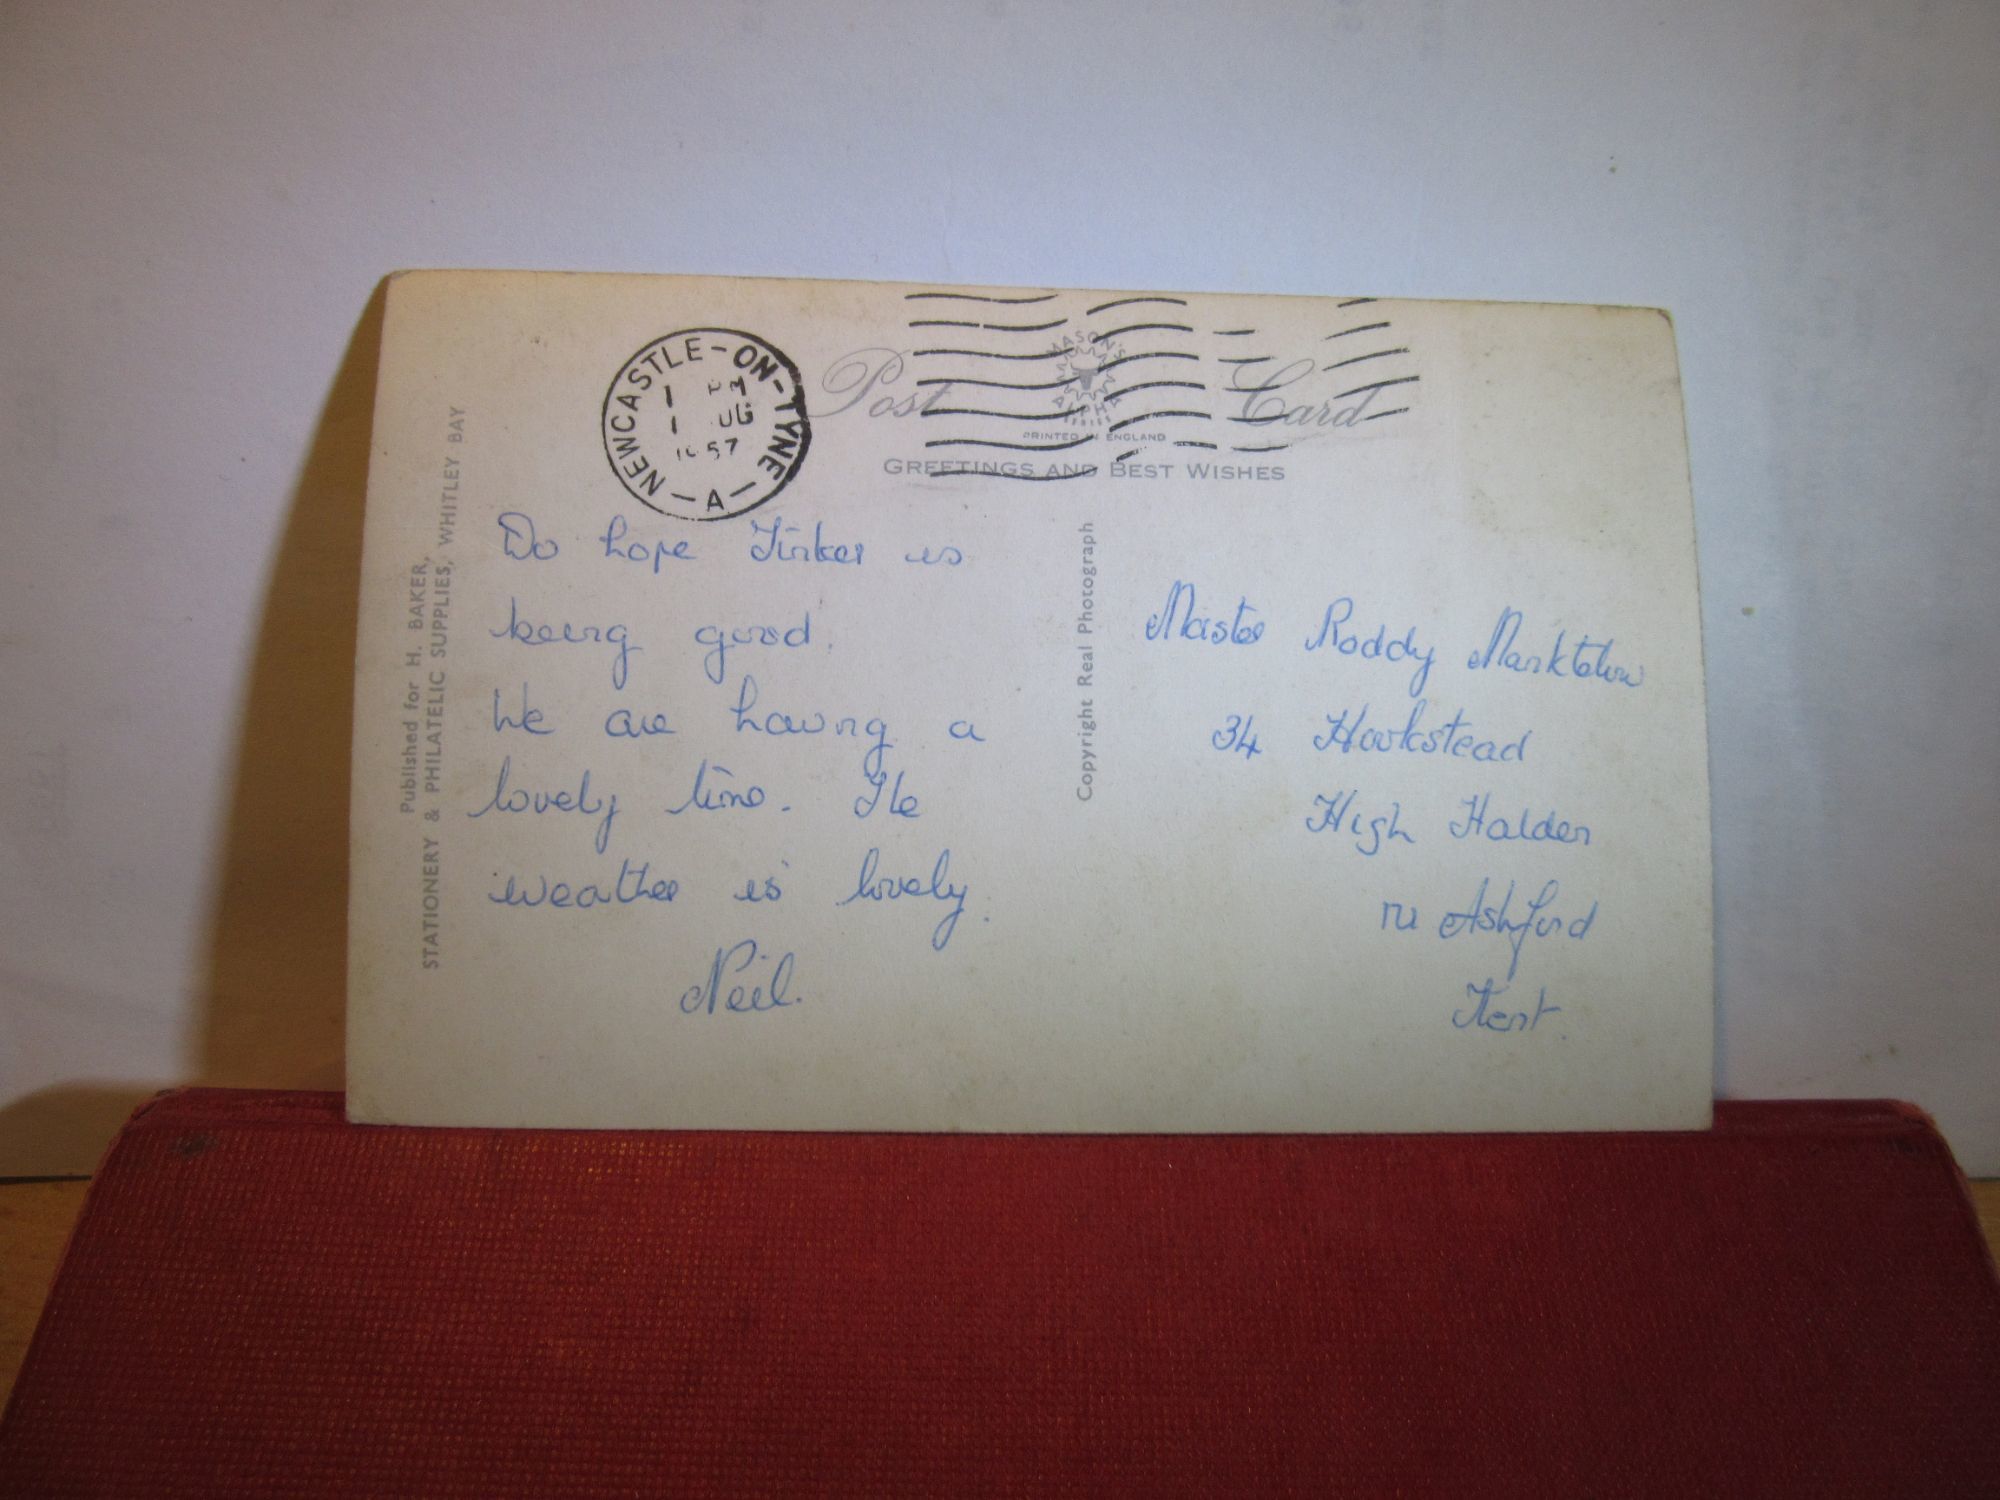 NEWCASTLE-ON-TYNE
1 PM
1 UG
1957
— A —
Post Card
MASON'S
ALPHA
SERIES
PRINTED IN ENGLAND
GREETINGS AND BEST WISHES
Published for H. BAKER,
STATIONERY & PHILATELIC SUPPLIES, WHITLEY BAY
Do hope Tinker is
being good.
We are having a
lovely time. The
weather is lovely.
Neil.
Copyright Real Photograph
Master Roddy
34 Hookstead
High Halden
nr Ashford
Kent.